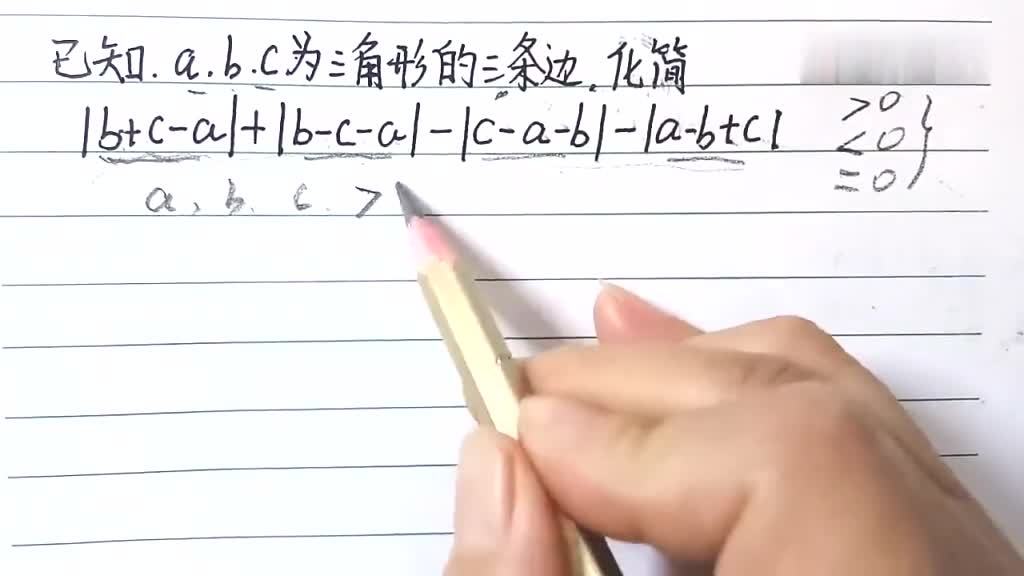 已知.a.b.c为三角形的三条边.化简
|b+c-a|+|b-c-a|-|c-a-b|-|a-b+c|
>0
<0
=0
a、b、c.>